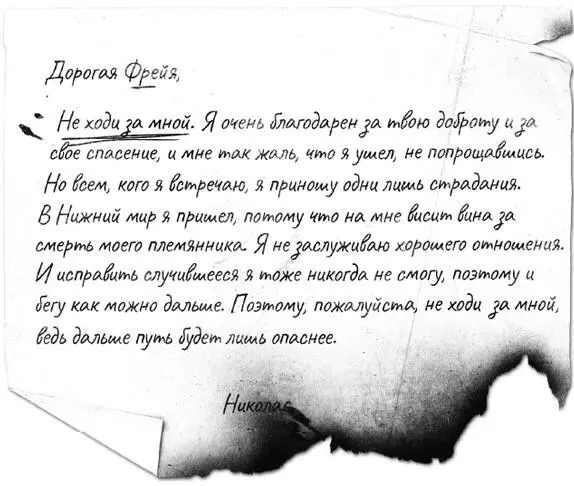 Дорогая Фрейя,
Не ходи за мной. Я очень благодарен за твою доброту и за
свое спасение, и мне так жаль, что я ушел, не попрощавшись.
Но всем, кого я встречаю, я приношу одни лишь страдания.
В Нижний мир я пришел, потому что на мне висит вина за
смерть моего племянника. Я не заслуживаю хорошего отношения.
И исправить случившееся я тоже никогда не смогу, поэтому и
бегу как можно дальше. Поэтому, пожалуйста, не ходи за мной,
ведь дальше путь будет лишь опаснее.
Николас